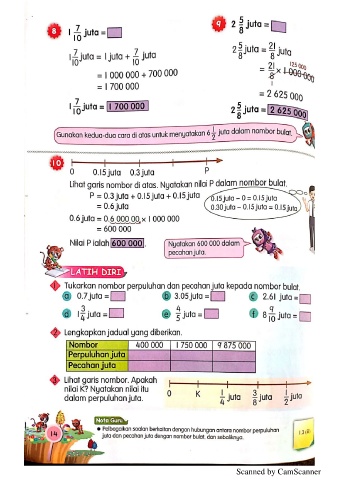 8 1 7/10 juta =
1 7/10 juta = 1 juta + 7/10 juta
= 1 000 000 + 700 000
= 1 700 000
1 7/10 juta = 1 700 000
9 2 5/8 juta =
2 5/8 juta = 21/8 juta
= 21/8 × 1 000 000 125 000
1
= 2 625 000
2 5/8 juta = 2 625 000
Gunakan kedua-dua cara di atas untuk menyatakan 6 1/2 juta dalam nombor bulat.
10
0 0.15 juta 0.3 juta P
Lihat garis nombor di atas. Nyatakan nilai P dalam nombor bulat.
P = 0.3 juta + 0.15 juta + 0.15 juta
= 0.6 juta
0.6 juta = 0.6 000 00 × 1 000 000
= 600 000
Nilai P ialah 600 000.
0.15 juta – 0 = 0.15 juta
0.30 juta – 0.15 juta = 0.15 juta
Nyatakan 600 000 dalam
pecahan juta.
LATIH DIRI
1 Tukarkan nombor perpuluhan dan pecahan juta kepada nombor bulat.
a 0.7 juta = b 3.05 juta = c 2.61 juta =
d 1 3/4 juta = e 4/5 juta = f 8 9/10 juta =
2 Lengkapkan jadual yang diberikan.
Nombor 400 000 1 750 000 9 875 000
Perpuluhan juta
Pecahan juta
3 Lihat garis nombor. Apakah
nilai K? Nyatakan nilai itu
dalam perpuluhan juta.
0 K 1/4 juta 3/8 juta 1/2 juta
Nota Guru
• Pelbagaikan soalan berkaitan dengan hubungan antara nombor perpuluhan
juta dan pecahan juta dengan nombor bulat, dan sebaliknya.
14
Scanned by CamScanner